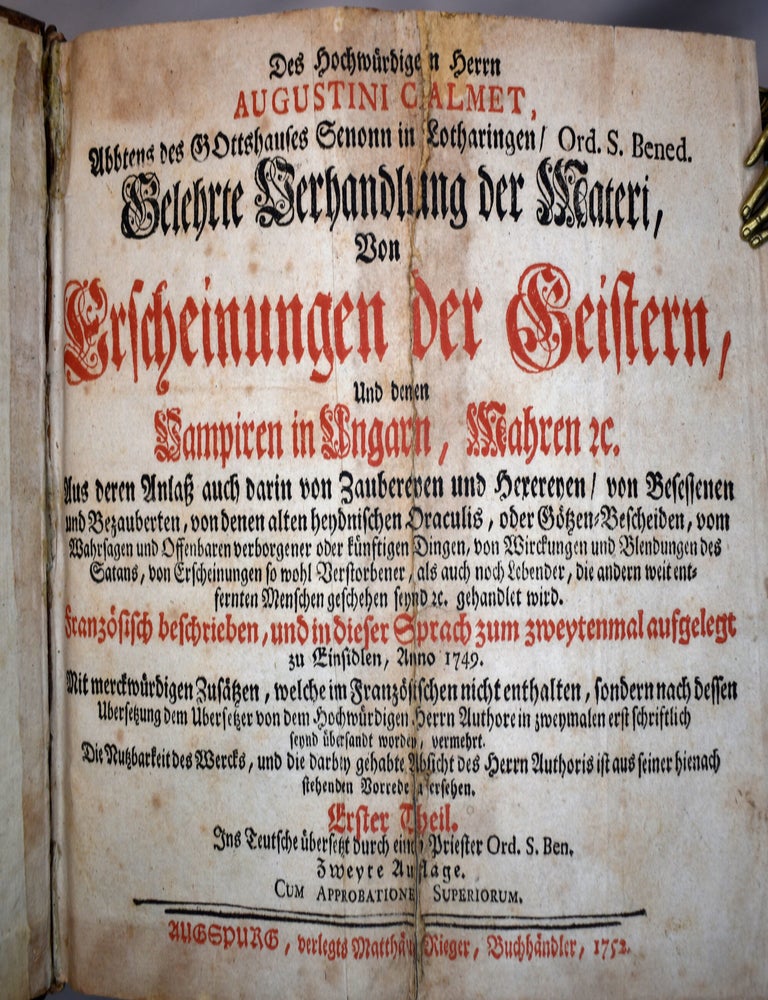 Des Hochwürdigen Herrn
AUGUSTINI CALMET,
Abbtens des GOttshauses Senonn in Lotharingen/ Ord. S. Bened.
Gelehrte Verhandlung der Materi,
Von
Erscheinungen der Geistern,
Und denen
Vampiren in Ungarn, Mahren ꝛc.
Aus deren Anlaß auch darin von Zaubereyen und Hexereyen/ von Besessenen
und Bezauberten, von denen alten heydnischen Oraculis, oder Götzen-Bescheiden, vom
Wahrsagen und Offenbaren verborgener oder künftigen Dingen, von Wirckungen und Blendungen des
Satans, von Erscheinungen so wohl Verstorbener, als auch noch Lebender, die andern weit ent-
fernten Menschen geschehen seynd ꝛc. gehandlet wird.
Französisch beschrieben, und in dieser Sprach zum zweytenmal aufgelegt
zu Einsidlen, Anno 1749.
Mit merckwürdigen Zusätzen, welche im Französischen nicht enthalten, sondern nach dessen
Ubersetzung dem Ubersetzer von dem Hochwürdigen Herrn Authore in zweymalen erst schriftlich
seynd übersandt worden, vermehrt.
Die Nutzbarkeit des Wercks, und die darbey gehabte Absicht des Herrn Authoris ist aus seiner hienach
stehenden Vorrede zu ersehen.
Erster Theil.
Ins Teutsche übersetzt durch einen Priester Ord. S. Ben.
Zweyte Auflage.
CUM APPROBATIONE SUPERIORUM.
AUGSPURG, verlegts Matthäus Rieger, Buchhändler, 1752.